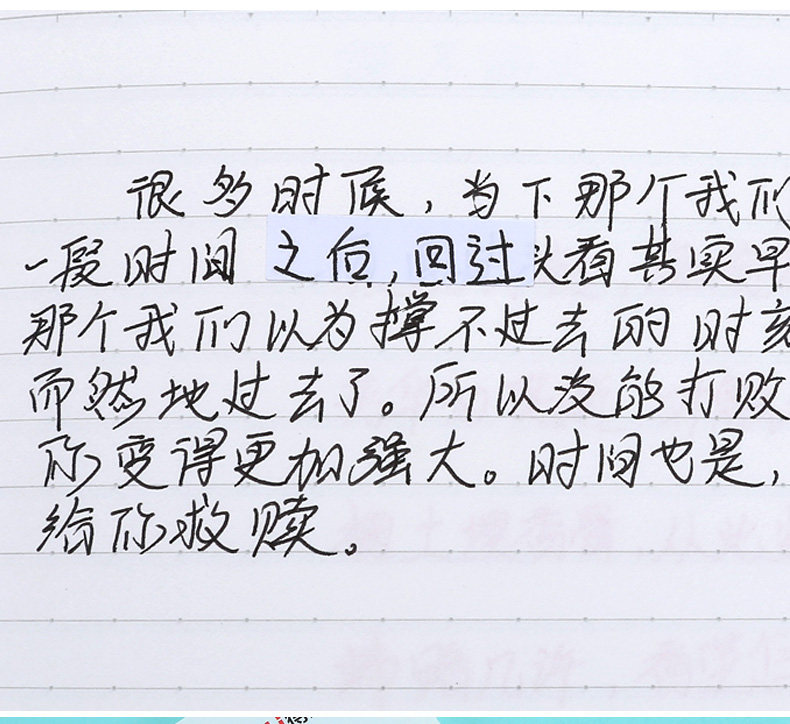 很多时候，当下那个我们
一段时间之后，回过头看其实早
那个我们以为撑不过去的时刻
而然地过去了。所以没能打败
你变得更加强大。时间也是，
给你救赎。